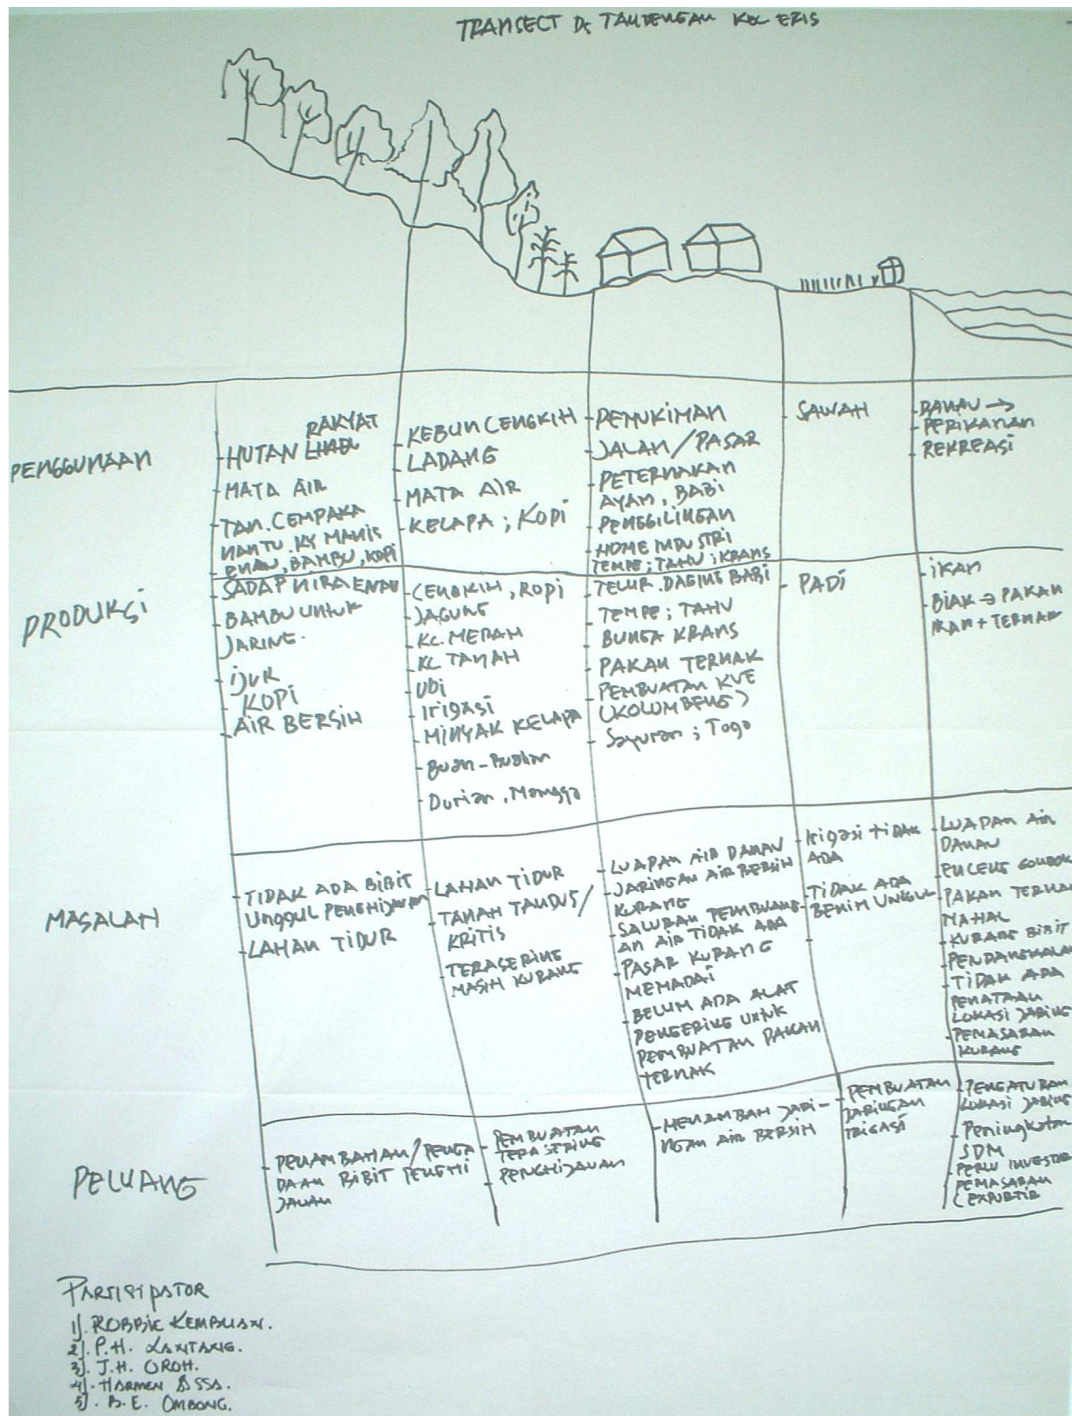 TRANSECT Ds TANDENGAN KEC ERIS
PENGGUNAAN
RAKYAT
- HUTAN
- MATA AIR
- TAN. CEMPAKA
NANTU, KY MANIS
ENAU, BAMBU, KOPI
- KEBUN CENGKIH
- LADANG
- MATA AIR
- KELAPA ; KOPI
- PEMUKIMAN
- JALAN / PASAR
- PETERNAKAN
AYAM, BABI
- PENGGILINGAN
- HOME INDUSTRI
TEMPE ; TAHU ; KRANS
- SAWAH
- DANAU →
- PERIKANAN
- REKREASI
PRODUKSI
- SADAP NIRA ENAU
- BAMBU UNTUK
JARING.
- IJUK
- KOPI
- AIR BERSIH
- CENGKIH, KOPI
- JAGUNG
- KC. MERAH
- KC TANAH
- UBI
- Irigasi
- MINYAK KELAPA
- Buah-Buahan
- Durian, Mangga
- TELUR. DAGING BABI
- TEMPE ; TAHU
- BUNGA KRANS
- PAKAN TERNAK
- PEMBUATAN KUE
(KOLOMBENG)
- Sayuran ; Toga
- PADI
- IKAN
- BIAK → PAKAN
IKAN + TERNAK
MASALAH
- TIDAK ADA BIBIT
Unggul PENGHIJAUAN
- LAHAN TIDUR
- LAHAN TIDUR
- TANAH TANDUS /
KRITIS
- TERASERING
MASIH KURANG
- LUAPAN AIR DANAU
- JARINGAN AIR BERSIH
KURANG
- SALURAN PEMBUANG-
AN AIR TIDAK ADA
- PASAR KURANG
MEMADAI
- BELUM ADA ALAT
PENGERING UNTUK
PEMBUATAN PAKAN
TERNAK
- Irigasi TIDAK
ADA
- TIDAK ADA
BENIH UNGGUL
- LUAPAN AIR
DANAU
- ENCENG GONDOK
- PAKAN TERNAK
MAHAL
- KURANG BIBIT
- PENDANGKALAN
- TIDAK ADA
PENATAAN
LOKASI JARING
- PEMASARAN
KURANG
PELUANG
- PENAMBAHAN / PENGA
DAAN BIBIT PENGHI
JAUAN
- PEMBUATAN
TERASERING
- PENGHIJAUAN
- MENAMBAH JARI-
NGAN AIR BERSIH
- PEMBUATAN
JARINGAN
IRIGASI
- PENGATURAN
LOKASI JARING
- Peningkatan
SDM
- PERLU INVESTOR
- PEMASARAN
PARTISIPATOR
1). ROBBIE KEMBUAN.
2). P.H. LANTANG.
3). J.H. OROH.
4). HARMEN ASSA.
5). B.E. OMBONG.